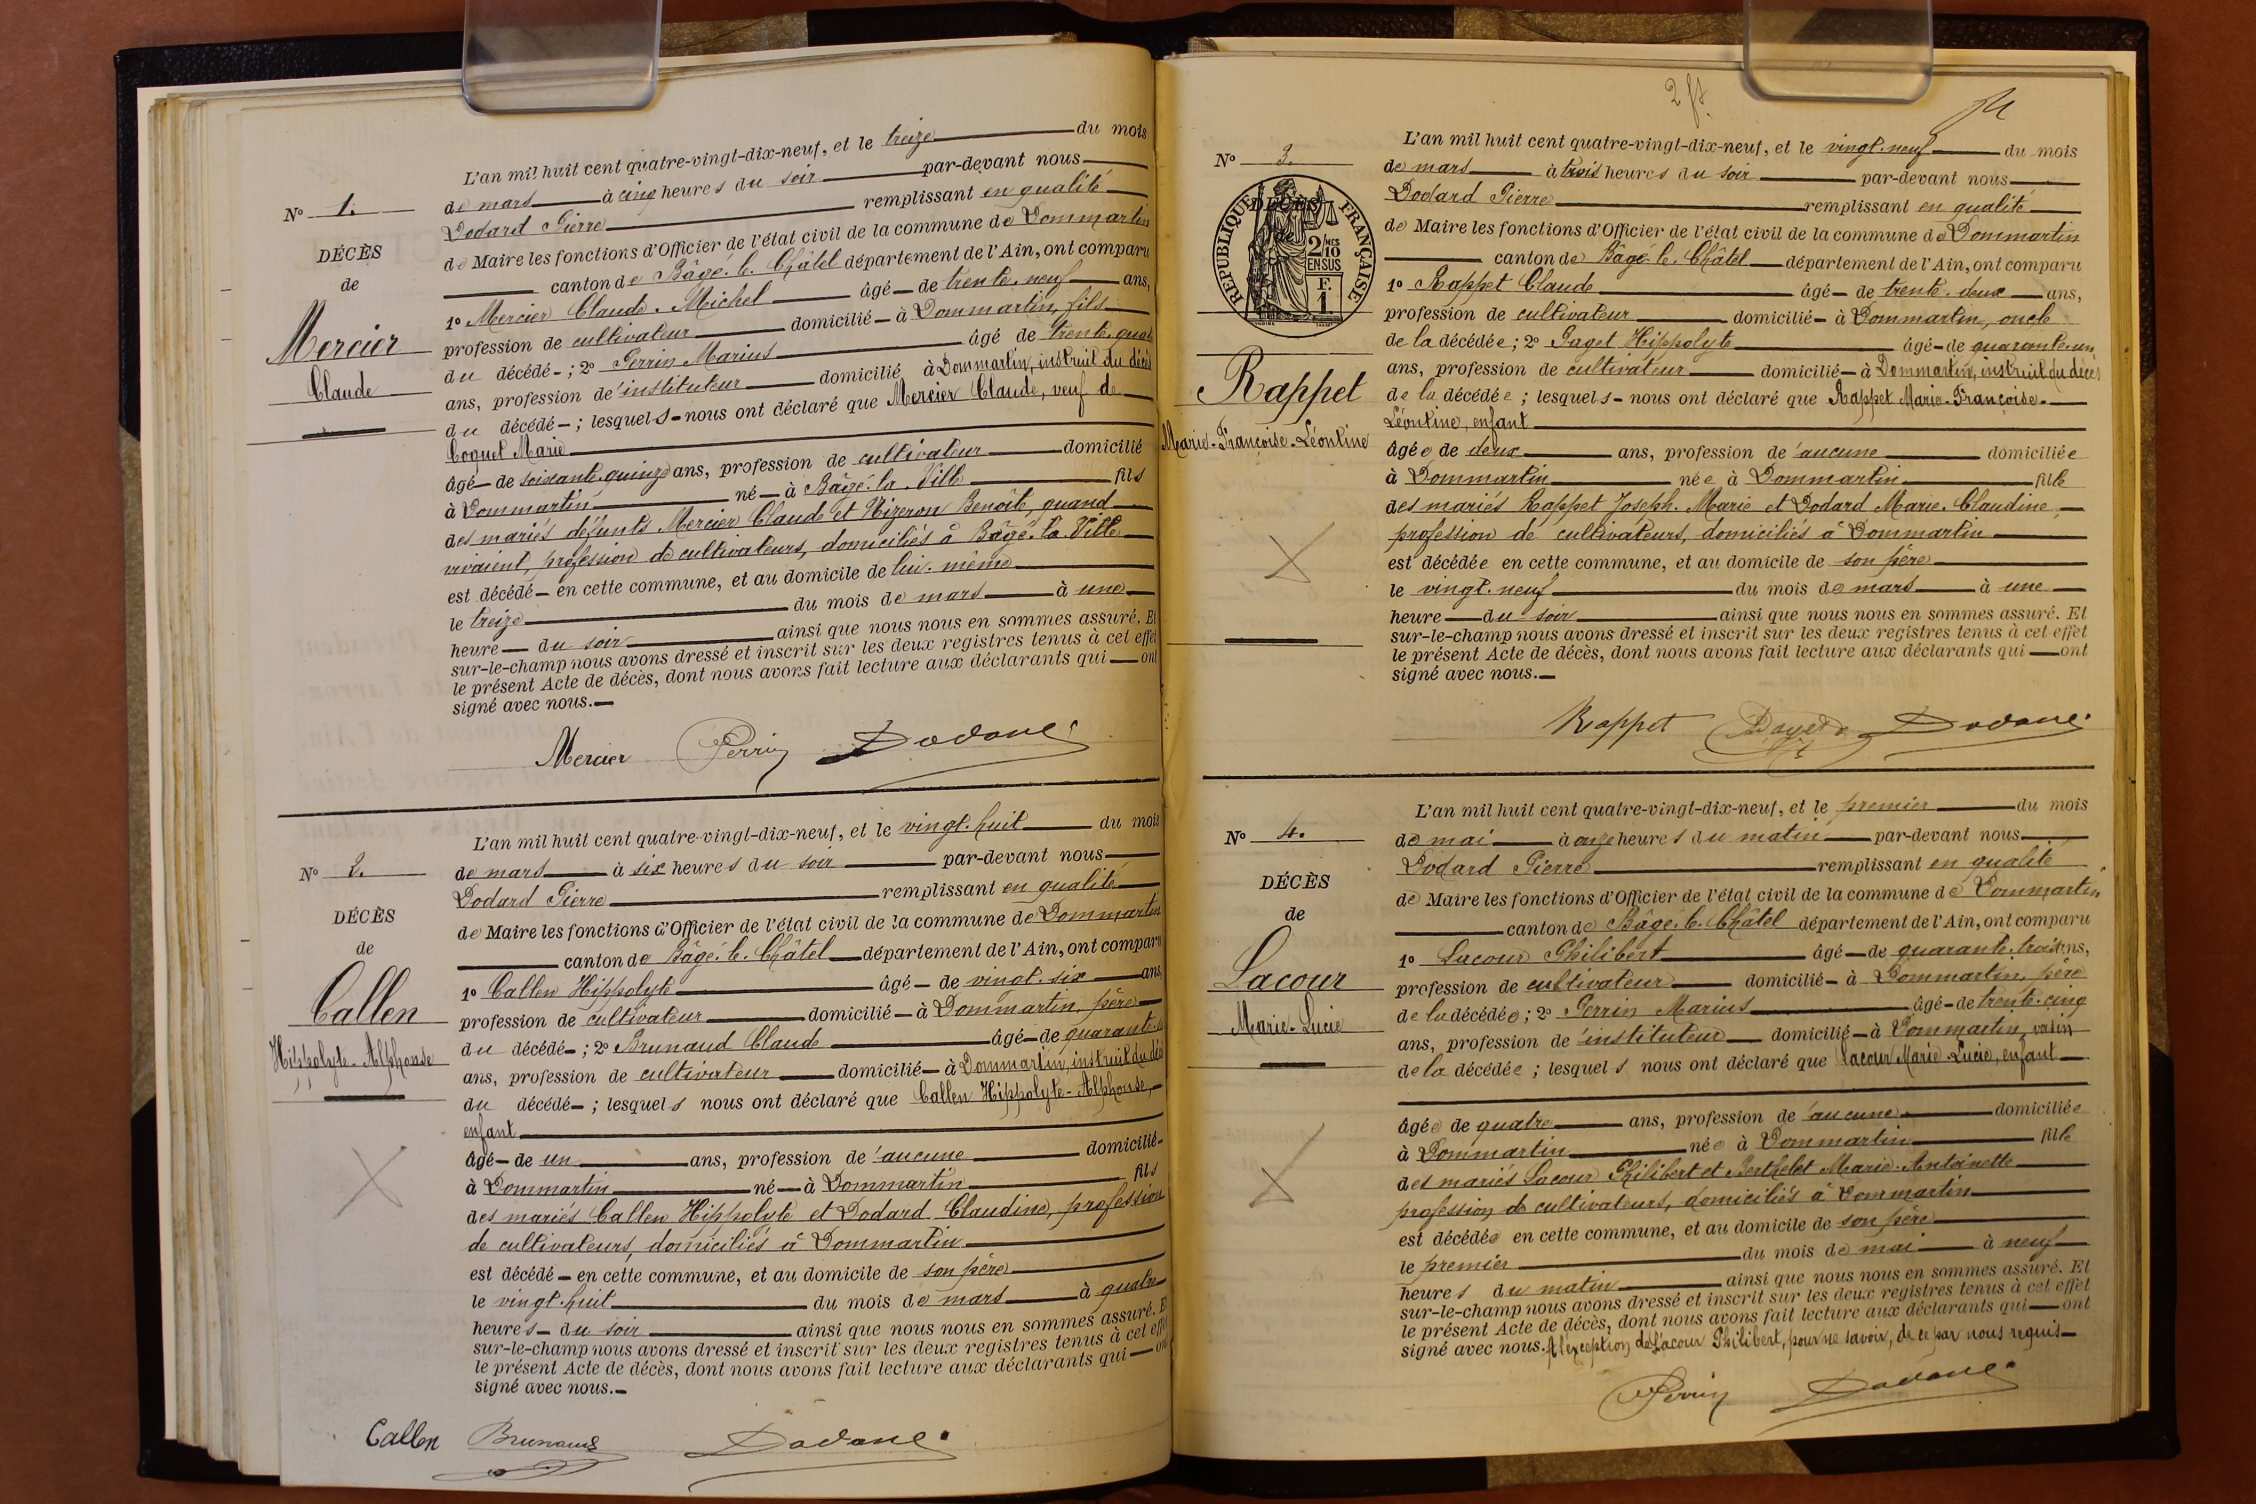 L'an mil huit cent quatre-vingt-dix-neuf, et le treize du mois
No 1.
de mars à cinq heures du soir par-devant nous
Dodard Pierre remplissant en qualité
DÉCÈS
de Maire les fonctions d'Officier de l'état civil de la commune de Dommartin
de
canton de Bâgé-le-Châtel département de l'Ain, ont comparu
1o Mercier Claude-Michel âgé de trente-neuf ans,
Mercier
profession de cultivateur domicilié à Dommartin, fils
du décédé ; 2o Perrin Marius âgé de trente-quatre
Claude
ans, profession d'instituteur domicilié à Dommartin, instruit du décès
du décédé ; lesquels nous ont déclaré que Mercier Claude, veuf de
Coquel Marie
âgé de soixante-quinze ans, profession de cultivateur domicilié
à Dommartin né à Bâgé-la-Ville fils
des mariés défunts Mercier Claude et Benoîte, quand
vivaient, profession de cultivateurs, domiciliés à Bâgé-la-Ville
est décédé en cette commune, et au domicile de lui-même
le treize du mois de mars à une
heure du soir ainsi que nous nous en sommes assuré. Et
sur-le-champ nous avons dressé et inscrit sur les deux registres tenus à cet effet
le présent Acte de décès, dont nous avons fait lecture aux déclarants qui ont
signé avec nous.
Mercier Perrin Dodard
L'an mil huit cent quatre-vingt-dix-neuf, et le vingt-huit du mois
No 2.
de mars à six heures du soir par-devant nous
Dodard Pierre remplissant en qualité
DÉCÈS
de Maire les fonctions d'Officier de l'état civil de la commune de Dommartin
de
canton de Bâgé-le-Châtel département de l'Ain, ont comparu
1o Callen Hippolyte âgé de vingt-six ans
Callen
profession de cultivateur domicilié à Dommartin, père
du décédé ; 2o Brunaud Claude âgé de quarante
Hippolyte-Alphonse
ans, profession de cultivateur domicilié à Dommartin, instruit du décès
du décédé ; lesquels nous ont déclaré que Callen Hippolyte-Alphonse,
enfant
âgé de un ans, profession d'aucune domicilié
à Dommartin né à Dommartin fils
des mariés Callen Hippolyte et Dodard Claudine, profession
de cultivateurs, domiciliés à Dommartin
est décédé en cette commune, et au domicile de son père
le vingt-huit du mois de mars à quatre
heures du soir ainsi que nous nous en sommes assuré. Et
sur-le-champ nous avons dressé et inscrit sur les deux registres tenus à cet effet
le présent Acte de décès, dont nous avons fait lecture aux déclarants qui ont
signé avec nous.
Callen Brunaud Dodard
L'an mil huit cent quatre-vingt-dix-neuf, et le vingt-neuf du mois
No 3.
de mars à trois heures du soir par-devant nous
Dodard Pierre remplissant en qualité
DÉCÈS
de
RÉPUBLIQUE FRANÇAISE
2/10 EN SUS
F. 1
de Maire les fonctions d'Officier de l'état civil de la commune de Dommartin
canton de Bâgé-le-Châtel département de l'Ain, ont comparu
1o Rappet Claude âgé de trente-deux ans,
profession de cultivateur domicilié à Dommartin, oncle
de la décédée ; 2o Paget Hippolyte âgé de quarante-un
Rappet
ans, profession de cultivateur domicilié à Dommartin, instruit du décès
de la décédée ; lesquels nous ont déclaré que Rappet Marie-Françoise-
Léontine, enfant
Marie-Françoise-Léontine
âgée de deux ans, profession d'aucune domiciliée
à Dommartin née à Dommartin fille
des mariés Rappet Joseph-Marie et Dodard Marie-Claudine,
profession de cultivateurs, domiciliés à Dommartin
est décédée en cette commune, et au domicile de son père
le vingt-neuf du mois de mars à une
heure du soir ainsi que nous nous en sommes assuré. Et
sur-le-champ nous avons dressé et inscrit sur les deux registres tenus à cet effet
le présent Acte de décès, dont nous avons fait lecture aux déclarants qui ont
signé avec nous.
Rappet Paget Dodard
L'an mil huit cent quatre-vingt-dix-neuf, et le premier du mois
No 4.
de mai à onze heures du matin par-devant nous
Dodard Pierre remplissant en qualité
DÉCÈS
de Maire les fonctions d'Officier de l'état civil de la commune de Dommartin
de
canton de Bâgé-le-Châtel département de l'Ain, ont comparu
1o Lacour Philibert âgé de quarante-trois ans,
Lacour
profession de cultivateur domicilié à Dommartin, père
de la décédée ; 2o Perrin Marius âgé de trente-cinq
Marie-Lucie
ans, profession d'instituteur domicilié à Dommartin, voisin
de la décédée ; lesquels nous ont déclaré que Lacour Marie-Lucie, enfant
âgée de quatre ans, profession d'aucune domiciliée
à Dommartin née à Dommartin fille
des mariés Lacour Philibert et Berthelet Marie-Antoinette
profession de cultivateurs, domiciliés à Dommartin
est décédée en cette commune, et au domicile de son père
le premier du mois de mai à neuf
heures du matin ainsi que nous nous en sommes assuré. Et
sur-le-champ nous avons dressé et inscrit sur les deux registres tenus à cet effet
le présent Acte de décès, dont nous avons fait lecture aux déclarants qui ont
signé avec nous. A l'exception de Lacour Philibert, pour ne savoir, de ce par nous requis
Perrin Dodard